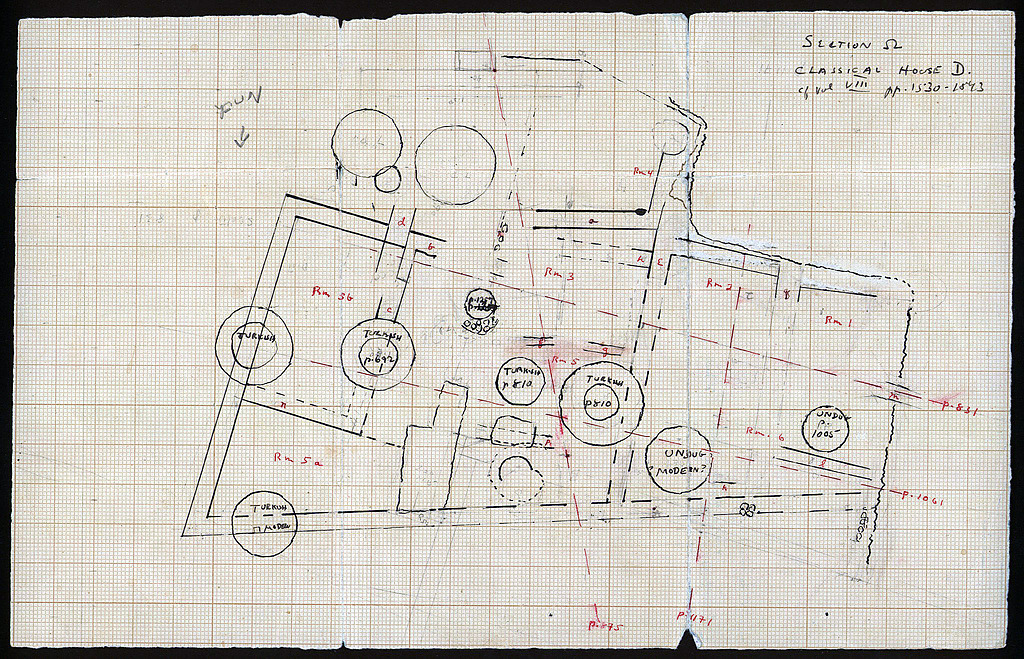 SECTION Ω
CLASSICAL HOUSE D.
cf vol VIII pp. 1530-1543
Rm 4
a
d
b
Rm 3
E
Rm 2
Rm 1
Rm 3b
c
TURKISH
TURKISH
p.692
g
Rm 5
TURKISH
p 810
TURKISH
p810
m
p.851
UNDUG
p.
1005
Rm. 6
n
l
UNDUG
MODERN?
Rm 5a
p.1061
TURKISH
p.875
p.1171